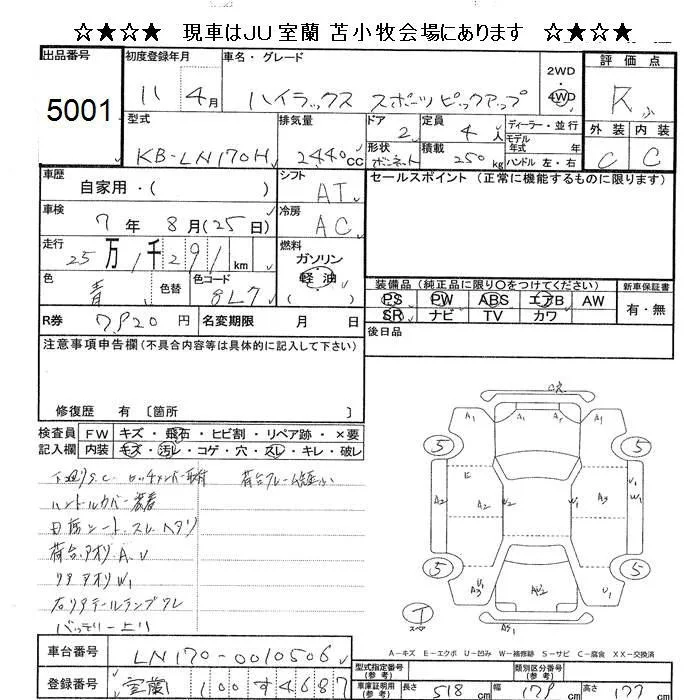 ☆★☆★ 現車はJU室蘭 苫小牧会場にあります ☆★☆★
出品番号 初度登録年月 車名・グレード 2WD 評価点
5001 11 4月 ハイラックス スポーツピックアップ 4WD R
型式 排気量 ドア 定員 ディーラー・並行 外装 内装
KB-LN170H 2440cc 2 4人 モデル年式 年 C C
形状 ボンネット 積載 250kg ハンドル 左・右
車歴 自家用・( ) シフト AT セールスポイント (正常に機能するものに限ります)
車検 7年 8月(25日) 冷房 AC
走行 25万1千291km 燃料 ガソリン 軽油
色 青 色替 色コード 8L7
装備品(純正品に限り○をつけてください) 新車保証書
PS PW ABS エアB AW 有・無
SR ナビ TV カワ
R券 7,920円 名変期限 月 日 後日品
注意事項申告欄(不具合内容等は具体的に記入して下さい)
修復歴 有 〔箇所 〕
検査員 FW キズ・飛石・ヒビ割・リペア跡・×要
記入欄 内装 キズ・汚レ・コゲ・穴・スレ・キレ・破レ
下廻りS.C.
ハンドルカバー装着
シート スレ ヘタリ
荷台アオリ A.U
リヤ アオリ W1
右リヤテールランプワレ
バッテリー上リ
A1 A1
5 5
E A2 A2 U2 A3 U1 W1
5 5
A3 U1 AU2 U1
T スペア S1
A-キズ E-エクボ U-凹み W-補修跡 S-サビ C-腐食 XX-交換済
車台番号 LN170-0010506 型式指定番号(参考) 類別区分番号(参考)
登録番号 室蘭 100す4687 車庫証明用(参考) 長さ 518cm 幅 179cm 高さ 177cm